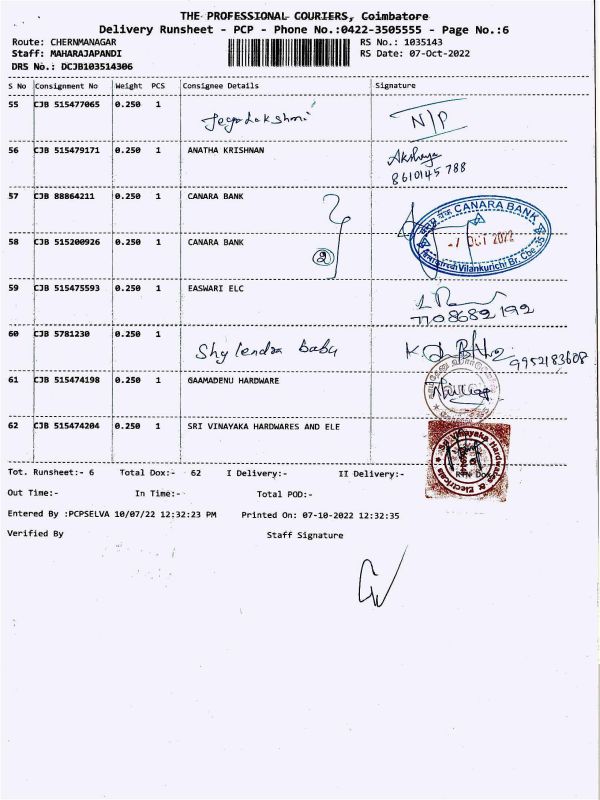 THE PROFESSIONAL COURIERS, Coimbatore
Delivery Runsheet - PCP - Phone No.:0422-3505555 - Page No.:6
Route: CHERNMANAGAR RS No.: 1035143
Staff: MAHARAJAPANDI RS Date: 07-Oct-2022
DRS No.: DCJB103514306
S No Consignment No Weight PCS Consignee Details Signature
55 CJB 515477065 0.250 1 Jegalakshmi N/P
56 CJB 515479171 0.250 1 ANATHA KRISHNAN Akshaya
8610145788
57 CJB 88864211 0.250 1 CANARA BANK
CANARA BANK
-7 OCT 2022
Vilankurichi Br. Che-35
58 CJB 515200926 0.250 1 CANARA BANK 2
59 CJB 515475593 0.250 1 EASWARI ELC
7708682192
60 CJB 5781230 0.250 1 Shylendra babu
9952183608
61 CJB 515474198 0.250 1 GAAMADENU HARDWARE
62 CJB 515474204 0.250 1 SRI VINAYAKA HARDWARES AND ELE
Sri Vinayaka Hardwares & Electricals
Tot. Runsheet:- 6 Total Dox:- 62 I Delivery:- II Delivery:- RTN Dox
Out Time:- In Time:- Total POD:-
Entered By :PCPSELVA 10/07/22 12:32:23 PM Printed On: 07-10-2022 12:32:35
Verified By Staff Signature